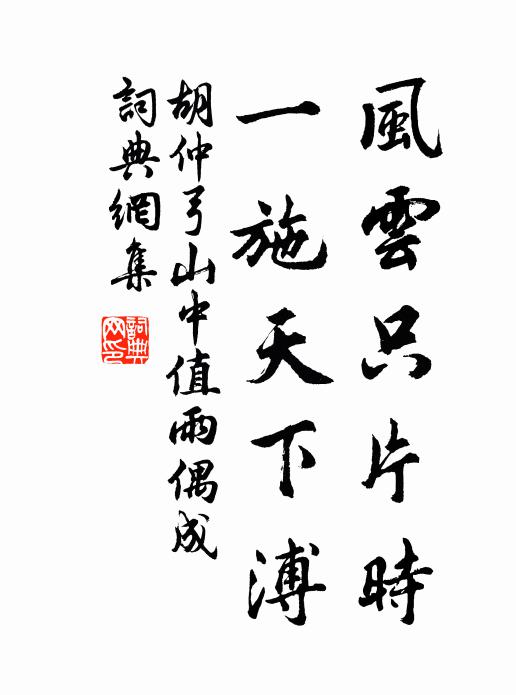 風雲只片時
一施天下溥
胡仲弓山中值雨偶成
詞典網集
詞典网印